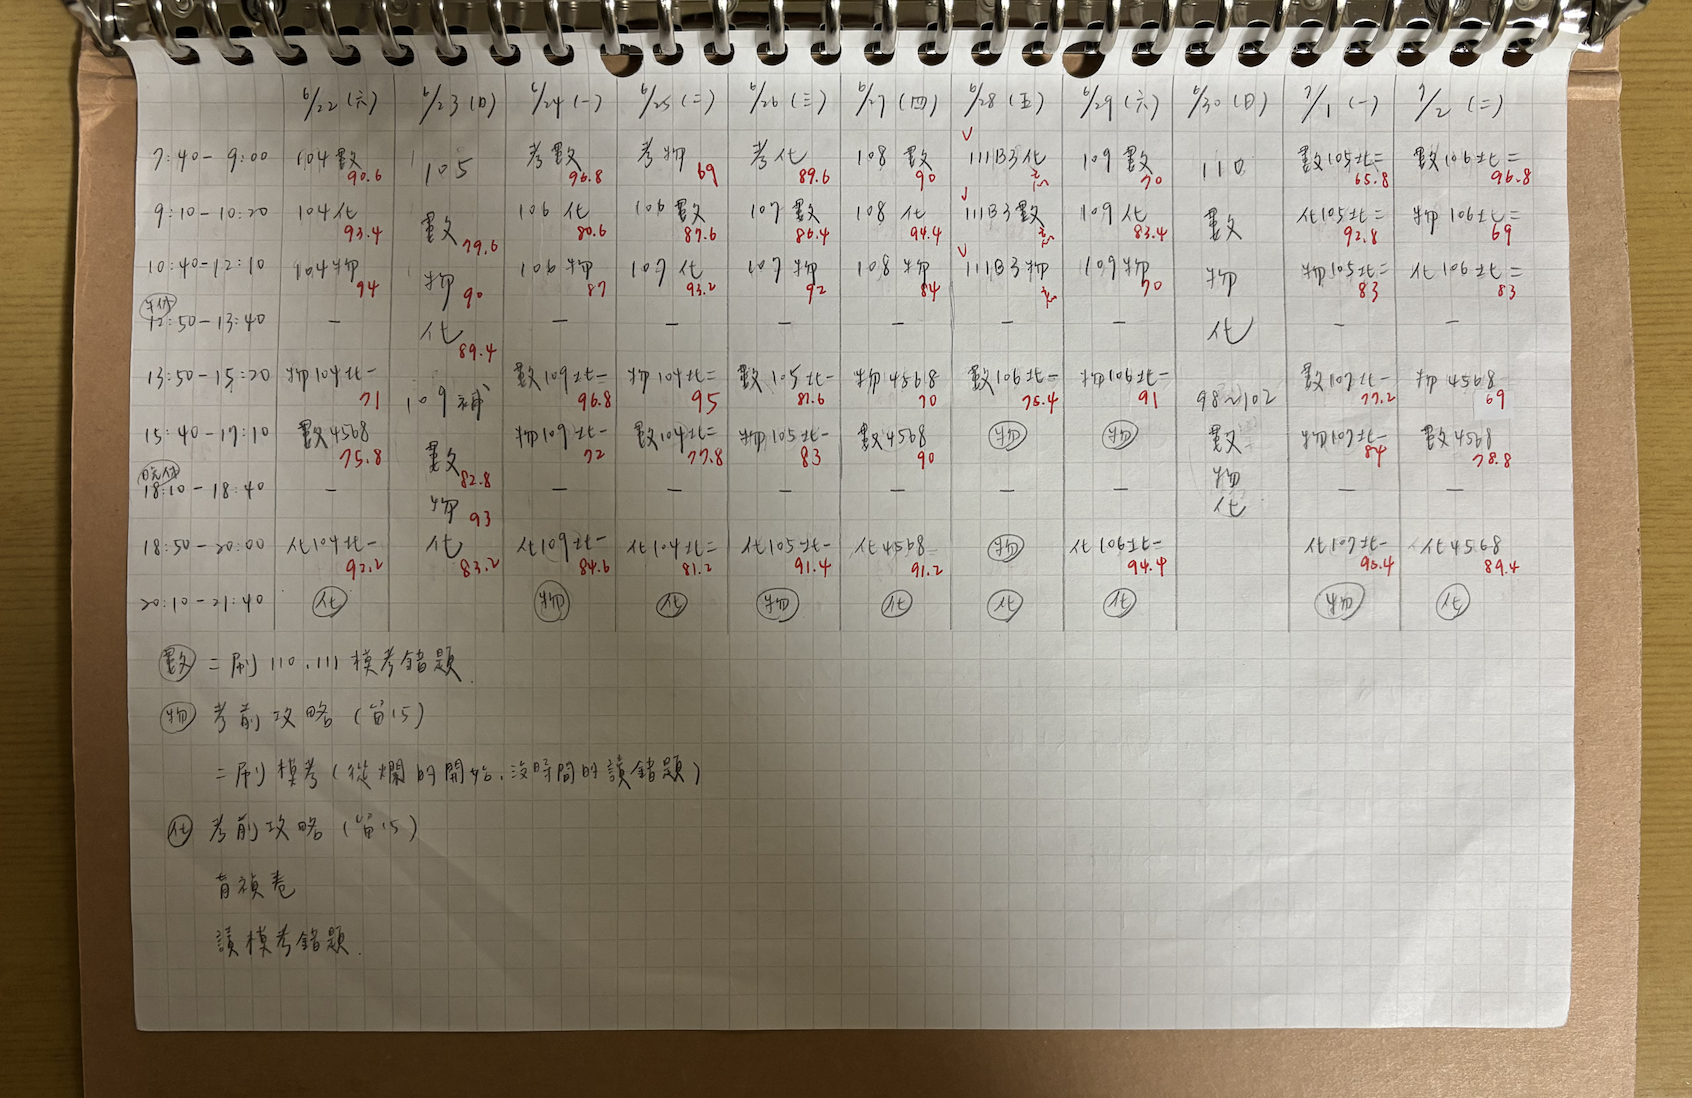 6/22 (六) 6/23 (日) 6/24 (一) 6/25 (二) 6/26 (三) 6/27 (四) 6/28 (五) 6/29 (六) 6/30 (日) 7/1 (一) 7/2 (二)
7:40-9:00 104數 90.6 105 考數 96.8 考物 69 考化 89.6 108數 90 111B3化 109數 70 110 數105北二 65.8 數106北二 96.8
9:10-10:20 104化 93.4 數 79.6 106化 80.6 106數 87.6 107數 86.4 108化 94.4 111B3數 109化 83.4 數 化105北二 92.8 物106北二 69
10:40-12:10 104物 94 物 90 106物 87 107化 93.2 107物 92 108物 84 111B3物 109物 70 物 物105北二 83 化106北二 83
午休
12:50-13:40 — 化 89.4 — — — — — — 化 — —
13:50-15:20 物104北一 71 109補 數109北一 96.8 物104北二 95 數105北一 87.6 物4568 70 數106北一 75.4 物106北二 91 98~102 數107北一 77.2 物4568 69
15:40-17:10 數4568 75.8 數 82.8 物109北一 72 數104北二 77.8 物105北一 83 數4568 90 物 物 數 物107北一 84 數4568 78.8
晚休
18:10-18:40 — 物 93 — — — — — — 物 化 — —
18:50-20:00 化104北一 92.2 化 83.2 化109北一 84.6 化104北二 81.2 化105北一 91.4 化4568 91.2 物 化106北二 94.4 化107北一 95.4 化4568 89.4
20:10-21:40 化 物 化 物 化 化 化 物 化
數 二刷 110.111 模考錯題
物 考前攻略(留15)
二刷模考(從爛的開始.沒時間的讀錯題)
化 考前攻略(留15)
讀模考錯題.